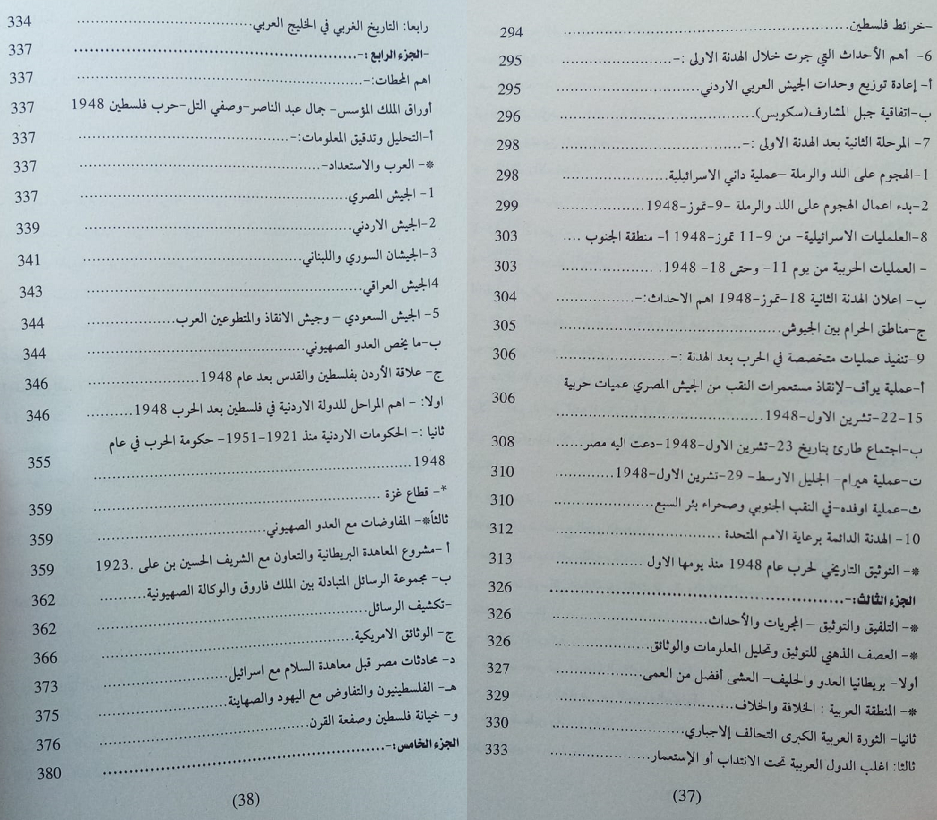 -خرائط فلسطين.................... 294
6- أهم الأحداث التي جرت خلال الهدنة الاولى :-.................... 295
أ- إعادة توزيع وحدات الجيش العربي الاردني.................... 295
ب-اتفاقية جبل المشارف(سكوبس).................... 296
7- المرحلة الثانية بعد الهدنة الاولى :-.................... 298
1-الهجوم على اللد والرملة –عملية داني الاسرائيلية.................... 298
2-بدء اعمال الهجوم على اللد والرملة -9-تموز-1948.................... 299
8-العلمليات الاسرائيلية- من 9-11 تموز-1948 أ- منطقة الجنوب .... 303
- العمليات الحربية من يوم 11- وحتى 18- 1948 .................... 303
ب- اعلان الهدنة الثانية 18-تموز-1948 اهم الاحداث:-.................... 304
ج-مناطق الحرام بين الجيوش.................... 305
9-تنفيذ عمليات متخصصة في الحرب بعد الهدنة :-.................... 306
أ-عملية يرآف-لإنقاذ مستعمرات النقب من الجيش المصري عميات حربية
15-22-تشرين الاول-1948.................... 306
ب-اجتماع طارئ بتاريخ 23-تشرين الاول-1948-دعت اليه مصر.... 308
ت-عملية هيرام- الجليل الاوسط- 29-تشرين الاول-1948.................... 310
ث-عملية اوفده-في النقب الجنوبي وصحراء بئر السبع.................... 310
10- الهدنة الدائمة برعاية الامم المتحدة .................... 312
*- التوثيق التاريخي لحرب عام 1948 منذ يومها الاول .................... 313
الجزء الثالث:-.................... 326
*- التلفيق والتوثيق –المجريات والأحداث.................... 326
*- العصف الذهني للتوثيق وتحليل المعلومات والوثائق.................... 326
أولا- بريطانيا العدو والحليف- العشى أفضل من العمى.................... 327
*- المنطقة العربية : الخلافة والخلاف.................... 329
ثانيا- الثورة العربية الكبرى التحالف إلاجباري.................... 330
ثالثا: اغلب الدول العربية تحت الانتداب أو الإستعمار.................... 333
(37)
رابعا: التاريخ الغربي في الخليج العربي.................... 334
-الجزء الرابع :-.................... 337
اهم المحطات:-.................... 337
أوراق الملك المؤسس- جمال عبد الناصر-وصفي التل-حرب فلسطين 1948 337
أ-التحليل وتدقيق المعلومات:-.................... 337
*- العرب والاستعداد-.................... 337
1- الجيش المصري.................... 337
2-الجيش الاردني.................... 339
3-الجيشان السوري واللبناني.................... 341
4الجيش العراقي.................... 343
5- الجيش السعودي – وجيش الانقاذ والمتطوعين العرب.................... 344
ب-ما يخص العدو الصهيوني.................... 344
ج- علاقة الأردن بفلسطين والقدس بعد عام 1948.................... 346
اولا: - اهم المراحل للدولة الاردنية في فلسطين بعد الحرب 1948....... 346
ثانيا :- الحكومات الاردنية منذ 1921-1951- حكومة الحرب في عام
1948.................... 355
*- قطاع غزة .................... 359
ثالثاً*- المفاوضات مع العدو الصهيوني.................... 359
أ -مشروع المعاهدة البريطانية والتعاون مع الشريف الحسين بن على .1923 359
ب- مجموعة الرسائل المتبادلة بين الملك فاروق والوكالة الصهيونية......... 362
-تكشيف الرسائل.................... 362
ج- الوثائق الامريكية.................... 366
د- محادثات مصر قبل معاهدة السلام مع اسرائيل.................... 373
هـ- الفلسطينيون والتفاوض مع اليهود والصهاينة.................... 375
و- خيانة فلسطين وصفعة القرن.................... 376
الجزء الخامس:-.................... 380
(38)